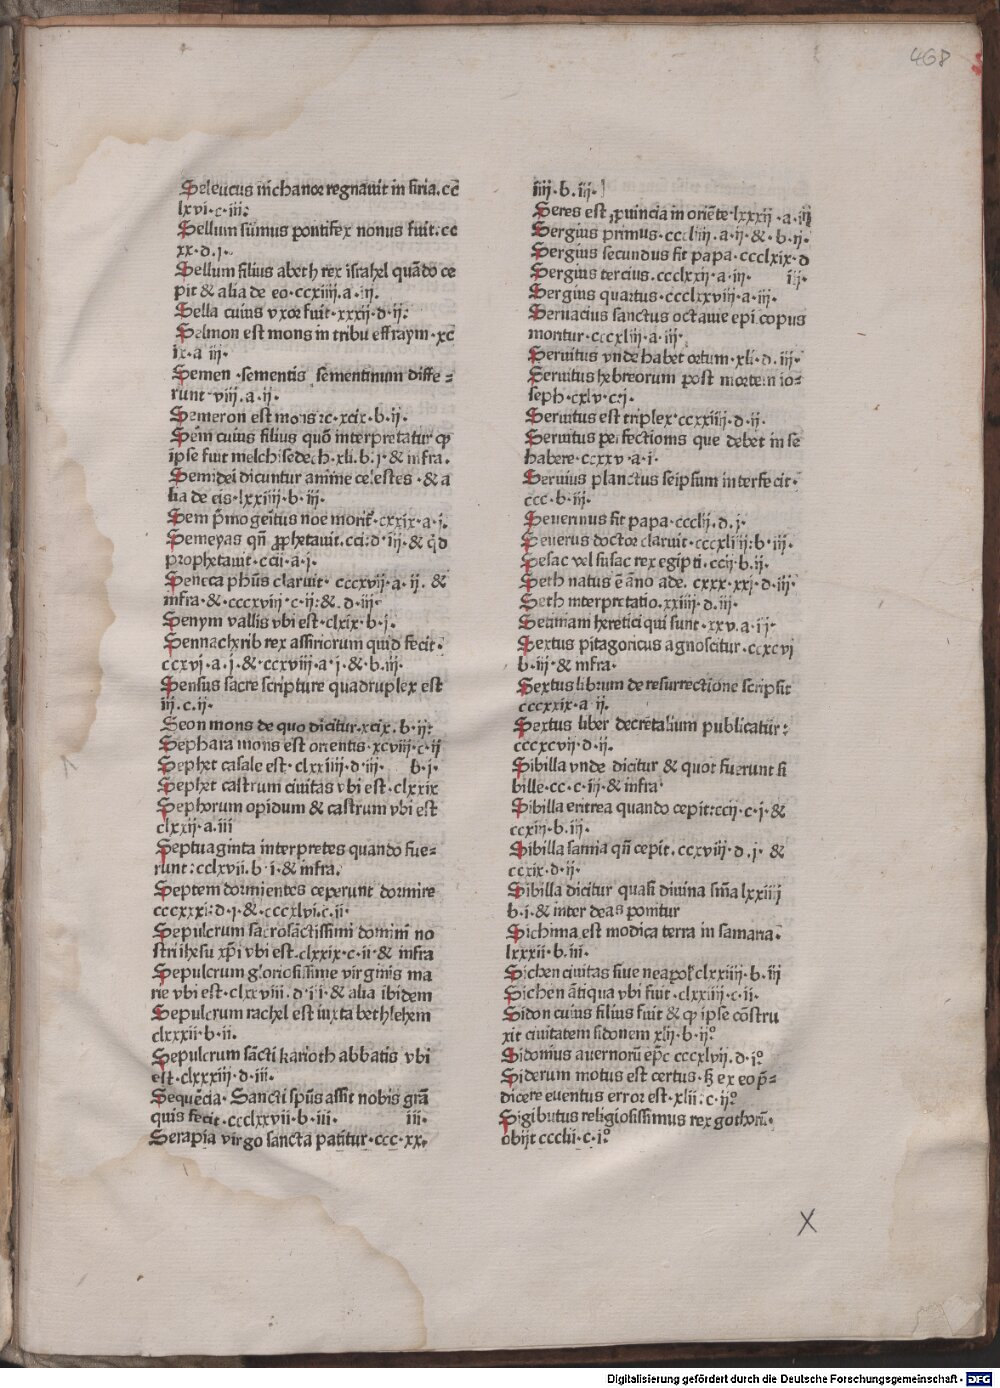 468
Seleucus nichanor regnauit in siria. cc̄
lxvi · c · iii:
Sellum sūmus pontifex nonus fuit: cc
xx · d · j ·
Sellum filius abeth rex israhel quādo ce
pit & alia de eo · ccxiiii. a · iij ·
Sella cuius vxor fuit · xxxij · d · ij:
Selmon est mons in tribu effraym · xc
ix · a iij ·
Semen · sementis sementinum diffe=
runt viij. a · ij ·
Semeron est mons · xcix · b · ij ·
Sem̄ cuius filius quō interpretatur ꝙ
ipse fuit melchisedech · xli. b · j · & infra.
Semidei dicuntur anime celestes · & a
lia de eis · lxxiiii · b · iij ·
Sem p̄mogēitus noe morit᷑ · cxxix · a · j.
Semeyas qn̄ ꝓphetauit. cci: d · iij · & qd̄
prophetauit · ccii · a · j ·
Seneca phūs claruit · cccxvij · a · ij. &
infra · & · cccxviij · c · ij: &. d · iij ·
Senym vallis vbi est · clxix · b · j.
Sennachrib rex assiriorum quid fecit ·
ccxvj · a · j · & · ccxviii · a · j · & · b. iij.
Sensus sacre scripture quadruplex est
iij. c. ij ·
Seon mons de quo dicitur · xcix. b · ij:
Sephara mons est orientis · xcviij · c · ij
Sephet casale est · clxxiiij · d · iij · b · j ·
Sephet castrum ciuitas vbi est · clxxix
Sephorum opidum & castrum vbi est
clxxij · a. iii
Septuaginta interpretes quando fue=
runt: cclxvii. b · i · & infra.
Septem dormientes ceperunt dormire
cccxxxi: d · j · & · cccxlvi. c. ij ·
Sepulcrum sacrosāctissimi domini no
stri ihesu xp̄i vbi est. clxxix · c · ii · & infra
Sepulcrum gloriosissime virginis ma
rie vbi est · clxxviii. d · i i · & alia ibidem
Sepulcrum rachel est iuxta bethlehem
clxxxii · b · ii.
Sepulcrum sācti karioth abbatis vbi
est · clxxxiij · d · iii.
Sequēcia · Sancti spūs assit nobis grā
quis fecit · ccclxxvii · b · iii. iii.
Serapia virgo sancta patitur · ccc · xx.
iiij · b · iij ·
Seres est ꝓuincia in oriēte · lxxxij · a · iij
Sergius primus · cccliiij · a · ij · & · b · ij ·
Sergius secundus fit papa · ccclxix · d
Sergius tercius. ccclxxij · a · iij · iij ·
Sergius quartus · ccclxxviij · a · iij ·
Seruacius sanctus octauie epi copus
moritur · cccxliij · a · iij ·
Seruitus vnde habet ortum · xli · d. iij ·
Seruitus hebreorum post mortem io=
seph · cxlv · c: j ·
Seruitus est triplex · ccxxiiij · d · ij ·
Seruitus perfectionis que debet in se
habere · ccxxv · a · i ·
Seruius planctus seipsum interfecit ·
ccc · b · iij ·
Seuerinus fit papa · ccclij · d. j ·
Seuerus doctor claruit · cccxliij: b · iij ·
Sesac vel susac rex egipti. ccij · b. ij.
Seth natus ē āno ade. cxxx · xxj · d · iij ·
Seth interpretatio. xxiiij · d. iij.
Seuiani heretici qui sunt · xxv. a · i j ·
Sextus pitagoricus agnoscitur · ccxcvj
b · iij · & infra ·
Sextus librum de resurrectione scripsit
cccxxix · a · ij.
Sextus liber decretalium publicatur:
cccxcvij · d · ij.
Sibilla vnde dicitur & quot fuerunt si
bille · cc · c · iij · & infra ·
Sibilla eritrea quando cepit: ccij · c · j · &
ccxiij · b. iij.
Sibilla samia qn̄ cepit. ccxviij · d · j · &
ccxix · d · ij ·
Sibilla dicitur quasi diuina sn̄ia lxxiiij
b · i · & inter deas ponitur
Sichima est modica terra in samaria ·
lxxxij · b. iii ·
Sichen ciuitas siue neapol᷑ clxxiiij · b · iij
Sichen ātiqua vbi fuit · clxxiiij · c · ii ·
Sidon cuius filius fuit & ꝙ ipse cōstru
xit ciuitatem sidonem xlij · b · ij:o
Sidonius auernorū ep̄c cccxlvij. d · jo
Siderum motus est certus · s̄ ex eo p̄=
dicere euentus error est · xlii: c · ij:o
Sigibutus religiosissimus rex gothorū ·
obijt ccclii · c · jo
X
Digitalisierung gefördert durch die Deutsche Forschungsgemeinschaft · DFG